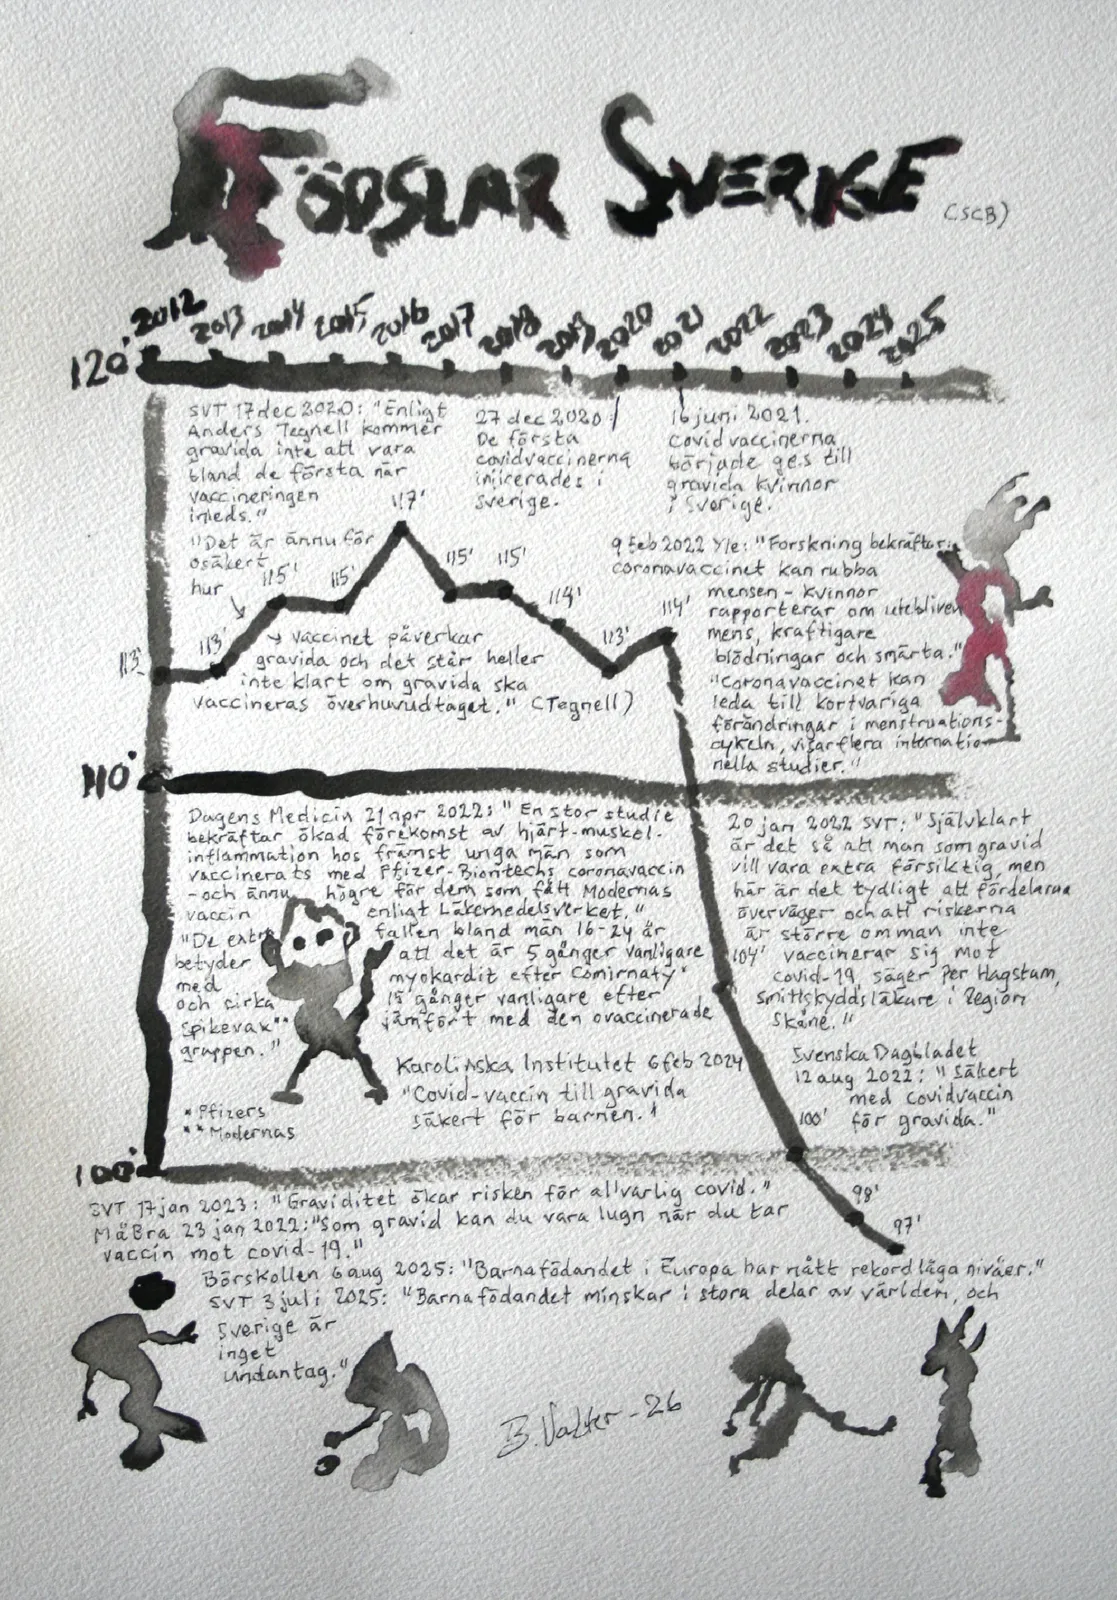 FÖDSLAR SVERIGE (SCB)
2012 2013 2014 2015 2016 2017 2018 2019 2020 2021 2022 2023 2024 2025
120'
SVT 17 dec 2020: "Enligt
Anders Tegnell kommer
gravida inte att vara
bland de första när
vaccineringen
inleds."
"Det är ännu för
osäkert
hur
27 dec 2020
De första
covidvaccinerna
injicerades i
Sverige.
16 juni 2021.
covidvaccinerna
började ges till
gravida kvinnor
i Sverige.
113' 113' 115' 115' 117' 115' 115' 114' 113' 114'
→ vaccinet påverkar
gravida och det står heller
inte klart om gravida ska
vaccineras överhuvudtaget." (Tegnell)
9 feb 2022 Yle: "Forskning bekräftar:
coronavaccinet kan rubba
mensen - kvinnor
rapporterar om utebliven
mens, kraftigare
blödningar och smärta."
"Coronavaccinet kan
leda till kortvariga
förändringar i menstruations-
cykeln, visar flera internatio-
nella studier."
110'
Dagens Medicin 21 apr 2022: "En stor studie
bekräftar ökad förekomst av hjärt-muskel-
inflammation hos främst unga män som
vaccinerats med Pfizer-Biontechs coronavaccin
- och ännu högre för dem som fått Modernas
vaccin enligt Läkemedelsverket."
"De extra fallen bland män 16-24 år
betyder att det är 5 gånger vanligare
med myokardit efter Comirnaty*
och cirka 15 gånger vanligare efter
Spikevax** jämfört med den ovaccinerade
gruppen."
* Pfizers
** Modernas
Karolinska Institutet 6 feb 2024
"Covid-vaccin till gravida
säkert för barnen."
20 jan 2022 SVT: "Självklart
är det så att man som gravid
vill vara extra försiktig, men
här är det tydligt att fördelarna
överväger och att riskerna
är större om man inte
104' vaccinerar sig mot
covid-19, säger Per Hagstam,
smittskyddsläkare i Region
Skåne."
Svenska Dagbladet
12 aug 2022: "Säkert
med covidvaccin
för gravida."
100'
100'
98'
97'
SVT 17 jan 2023: "Graviditet ökar risken för allvarlig covid."
MåBra 23 jan 2022: "Som gravid kan du vara lugn när du tar
vaccin mot covid-19."
Börskollen 6 aug 2025: "Barnafödandet i Europa har nått rekordlåga nivåer."
SVT 3 juli 2025: "Barnafödandet minskar i stora delar av världen, och
Sverige är
inget
undantag."
B. Valter - 26